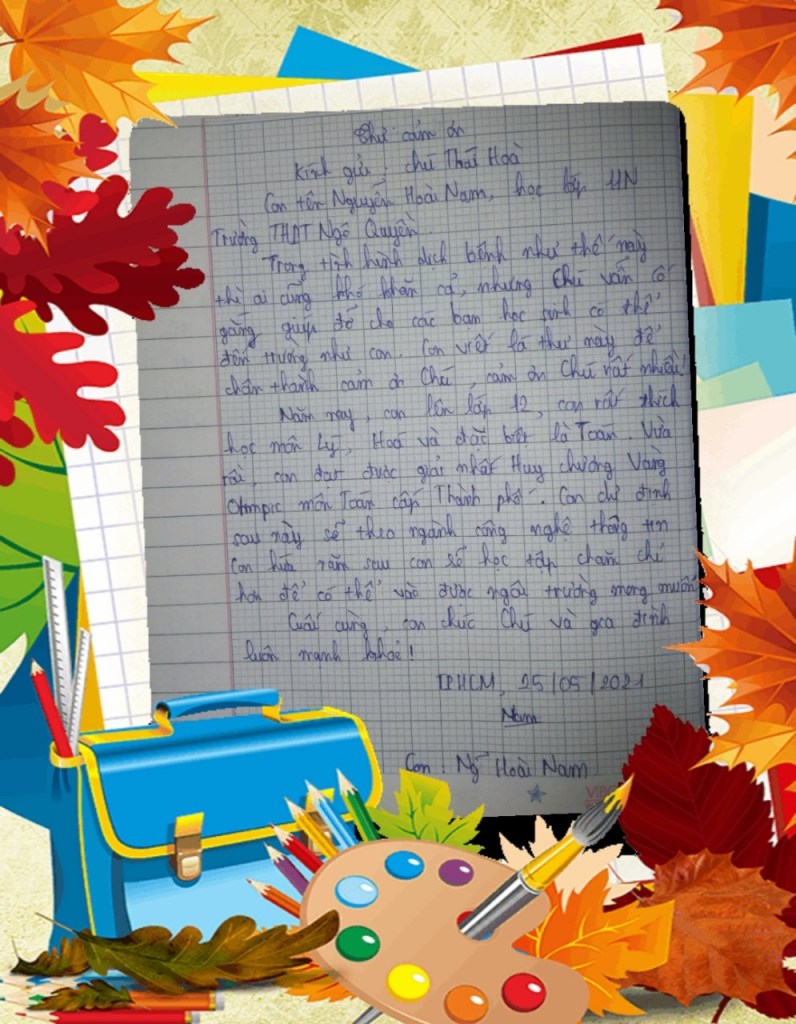 Thư cảm ơn
Kính gửi : chú Thái Hoà
Con tên Nguyễn Hoài Nam, học lớp 11N
Trường THPT Ngô Quyền.
Trong tình hình dịch bệnh như thế này
thì ai cũng khó khăn cả, nhưng Chú vẫn cố
gắng giúp đỡ cho các bạn học sinh có thể
đến trường như con. Con viết lá thư này để
chân thành cảm ơn Chú, cảm ơn Chú rất nhiều!
Năm nay, con lên lớp 12, con rất thích
học môn Lý, Hoá và đặc biệt là Toán. Vừa
rồi, con đạt được giải nhất Huy chương Vàng
Olimpic môn Toán cấp Thành phố. Con dự định
sau này sẽ theo ngành công nghệ thông tin
Con hứa năm sau con sẽ học tập chăm chỉ
hơn để có thể vào được ngôi trường mong muốn
Cuối cùng, con chúc Chú và gia đình
luôn mạnh khoẻ!
TPHCM, 25/05/2021
Nam
Con : Ng~ Hoài Nam